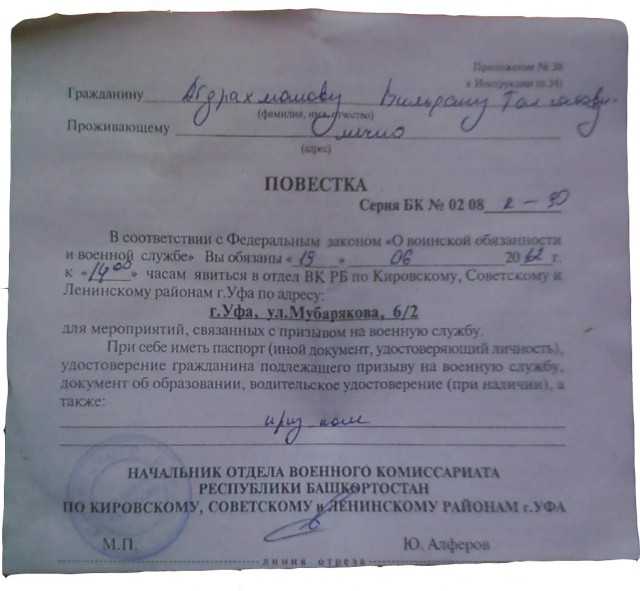 Приложение № 30
к Инструкции (п.34)
Гражданину Абдрахманову Вильдану
(фамилия, имя, отчество)
Проживающему лично
(адрес)
ПОВЕСТКА
Серия БК № 02 08 к - 90
В соответствии с Федеральным законом «О воинской обязанности
и военной службе» Вы обязаны « 19 » 06 2012 г.
к «14 00» часам явиться в отдел ВК РБ по Кировскому, Советскому и
Ленинскому районам г.Уфа по адресу:
г.Уфа, ул.Мубарякова, 6/2
для мероприятий, связанных с призывом на военную службу.
При себе иметь паспорт (иной документ, удостоверяющий личность),
удостоверение гражданина подлежащего призыву на военную службу,
документ об образовании, водительское удостоверение (при наличии), а
также:
приз ком
НАЧАЛЬНИК ОТДЕЛА ВОЕННОГО КОМИССАРИАТА
РЕСПУБЛИКИ БАШКОРТОСТАН
ПО КИРОВСКОМУ, СОВЕТСКОМУ и ЛЕНИНСКОМУ РАЙОНАМ г.УФА
М.П. Ю. Алферов
линия отреза